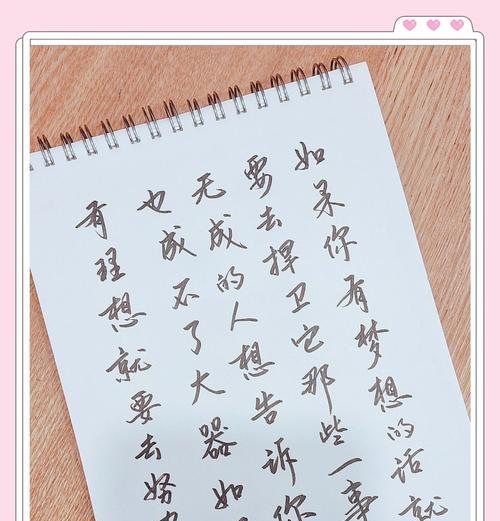 如果你有梦想的话就
要去捍卫它那些一事
无成的人想告诉你
也成不了大器如
有理想就要去努